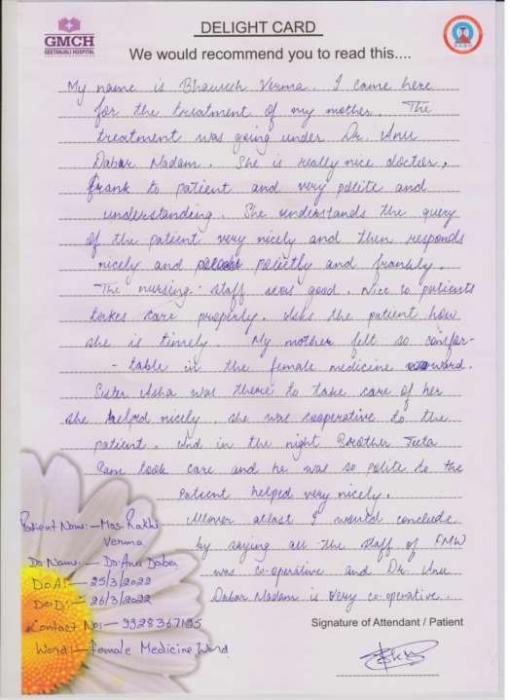 GMCH
GEETANJALI HOSPITAL
DELIGHT CARD
We would recommend you to read this....
My name is Bhavesh Verma. I came here
for the treatment of my mother. The
treatment was going under Dr. Anu
Dabar Madam. She is really nice doctor,
frank to patient and very polite and
understanding. She understands the query
of the patient very nicely and then responds
nicely and politly and frankly.
The nursing staff was good. Nice to patients
takes care properly. Asks the patient how
she is timely. My mother felt so comfor-
-table in the female medicine ward.
Sister Asha was there to take care of her
she helped nicely. she was cooperative to the
patient. And in the night Brother Jeeta
Ram took care and he was so polite to the
patient helped very nicely.
Allover atlast I would conclude
by saying all the staff of FMW
was co-operative and Dr. Anu
Dabar Madam is very co-operative.
Patient Name:- Mrs. Rakhi
Verma
Dr. Name:- Dr. Anu Dabar
DoA:- 25/3/2022
DoD:- 26/3/2022
Contact No:-
Ward:- Female Medicine Ward
Signature of Attendant / Patient